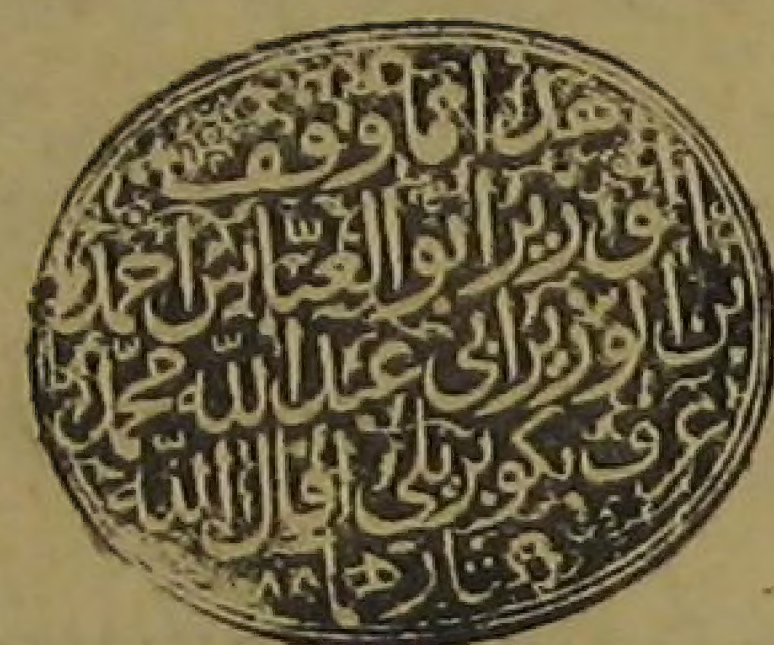 هذا ما وقف
الوزير ابو العباس احمد
بن الوزير ابى عبد الله محمد
عرف بكوبريلى اقال الله
عثارهما ٨٨